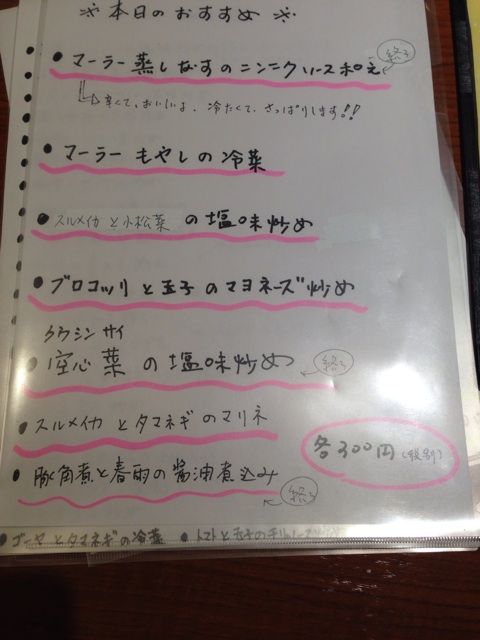 ※本日のおすすめ※
● マーラー蒸しなすのニンニクソース和え 終了
辛くて、おいしいよ、冷たくて、さっぱりします!!
● マーラーもやしの冷菜
● スルメイカと小松菜の塩味炒め
● ブロコッリと玉子のマヨネーズ炒め
クウシンサイ
● 空心菜の塩味炒め 終了
● スルメイカとタマネギのマリネ
各300円(税別)
● 豚角煮と春雨の醤油煮込み 終了
● ゴーヤとタマネギの冷菜 ● トマトと玉子のチリソース